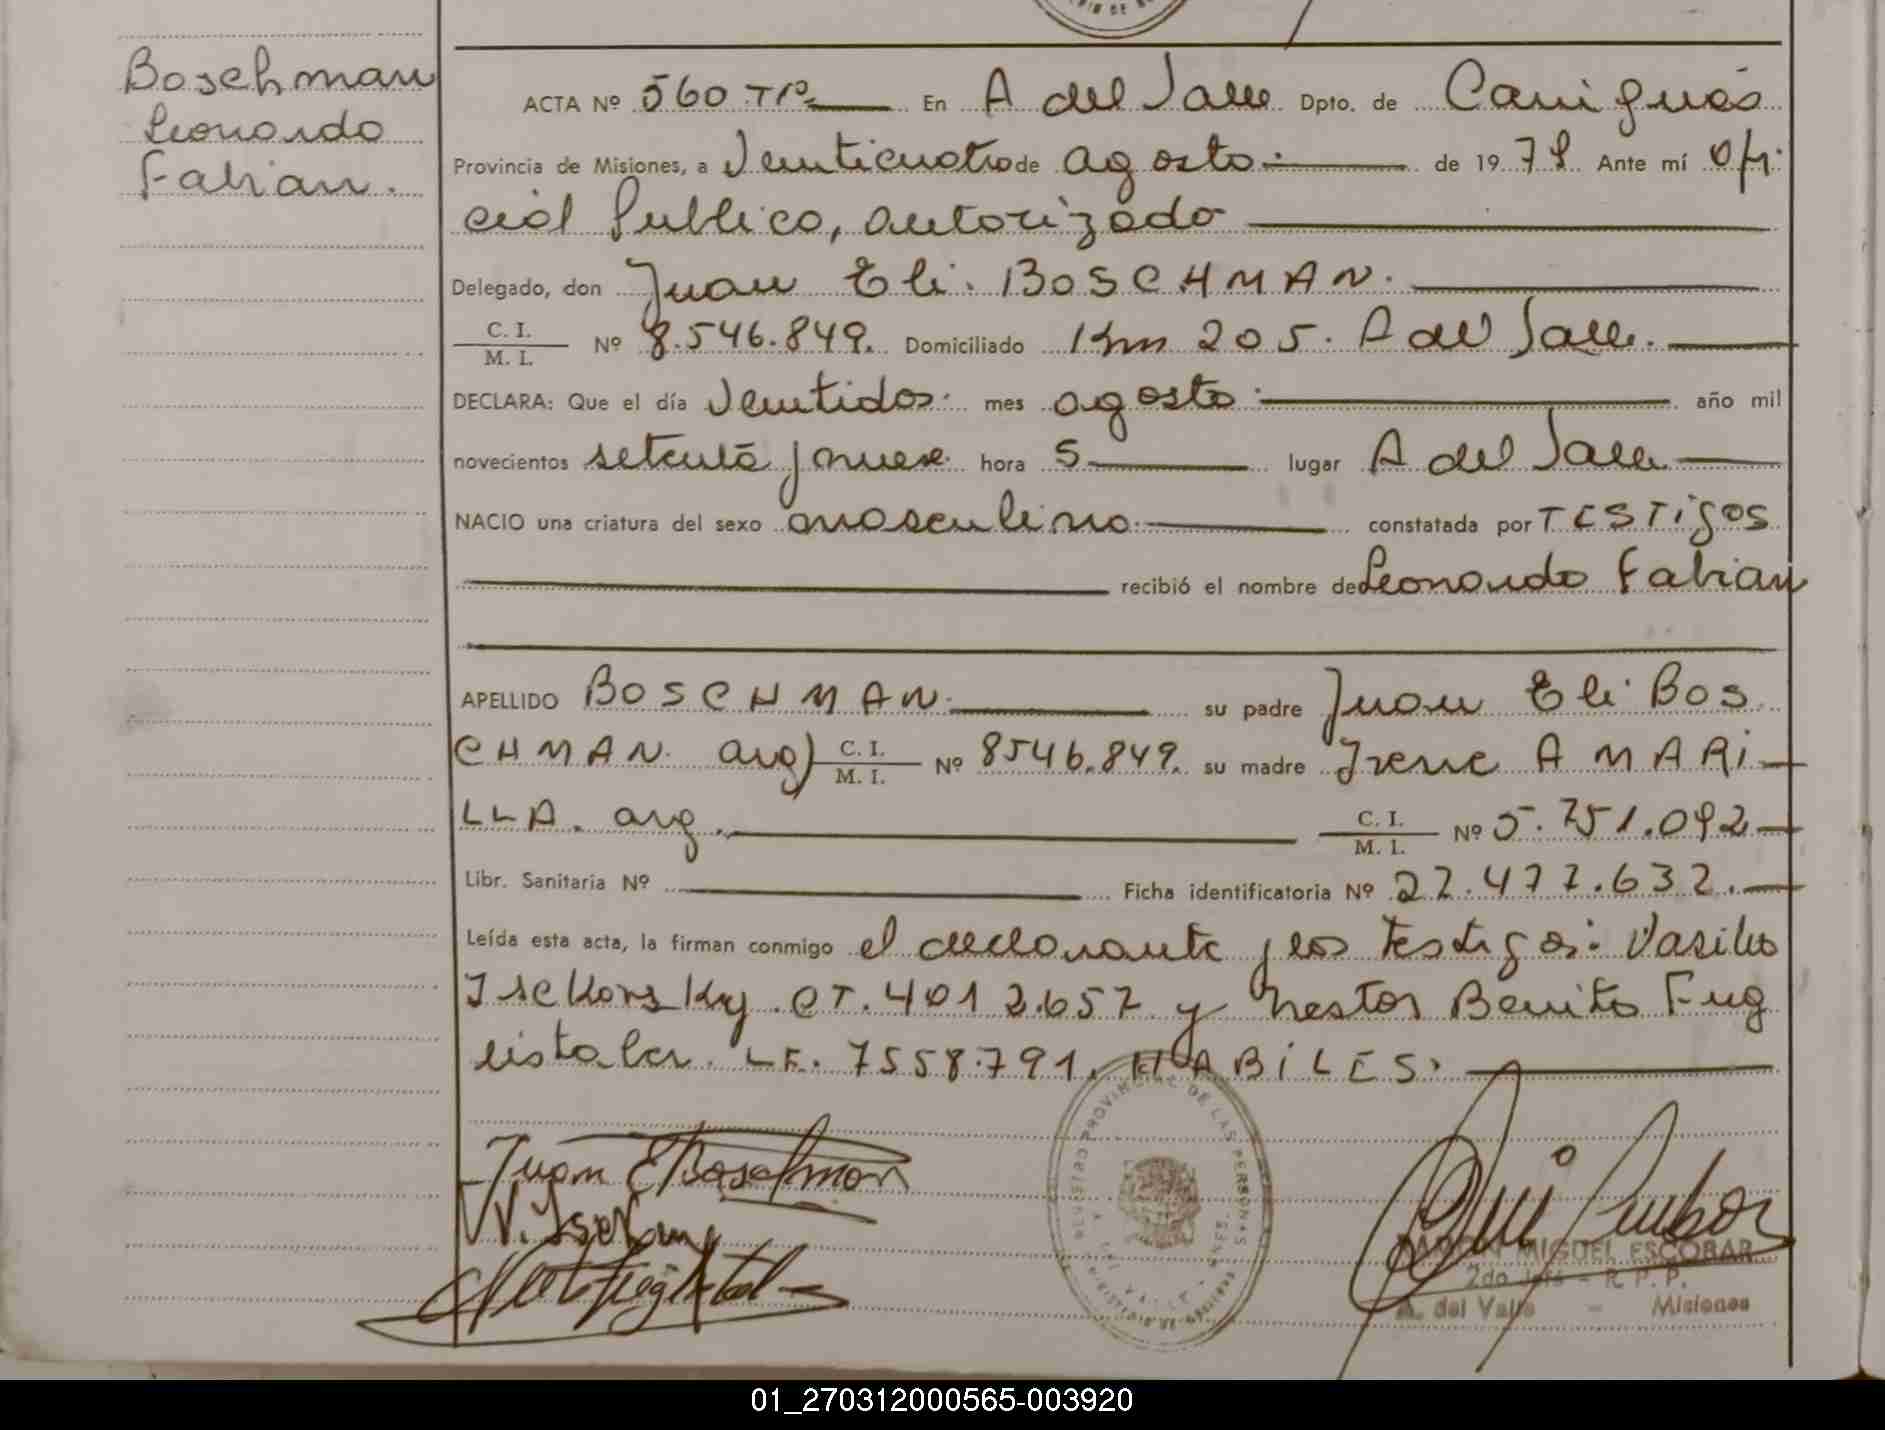 Boschman
Leonardo
Fabian.
ACTA Nº 560 Tº En A del Valle Dpto. de Cainguás
Provincia de Misiones, a Veinticuatro de agosto de 1979 Ante mí ofi
cial Publico, autorizado
Delegado, don Juan Eli. BOSCHMAN.
C. I.
M. I. Nº 8.546.849. Domiciliado Km 205. A del Valle.
DECLARA: Que el día Veintidos mes agosto año mil
novecientos setenta y nueve hora 5 lugar A del Valle
NACIO una criatura del sexo masculino constatada por TESTigos
recibió el nombre de Leonardo Fabian
APELLIDO BOSCHMAN. su padre Juan Eli Bos
CHMAN. arg) C. I.
M. I. Nº 8546.849. su madre Irene AMARi
LLA. arg. C. I.
M. I. Nº 5.751.092
Libr. Sanitaria Nº Ficha identificatoria Nº 27.477.632.
Leída esta acta, la firman conmigo el declarante y los testigos: Vasilio
Isekorsky. CI. 4012.657 y Nestor Benito Fug
listaler. LE. 7558.791. HABiLES.
Juan E Boschman
REGISTRO PROVINCIAL DE LAS PERSONAS
A. DEL VALLE
RAMON MIGUEL ESCOBAR
2do Jefe - R. P. P.
A. del Valle - Misiones
01_270312000565-003920